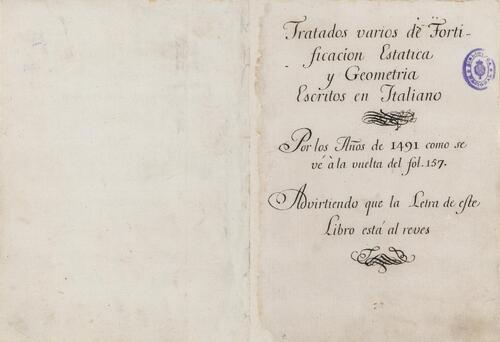 Tratados varios de Forti-
ficacion Estatica
y Geometria
Escritos en Italiano
Por los Años de 1491 como se
vé à la vuelta del fol. 157.
Advirtiendo que la Letra de este
Libro está al reves